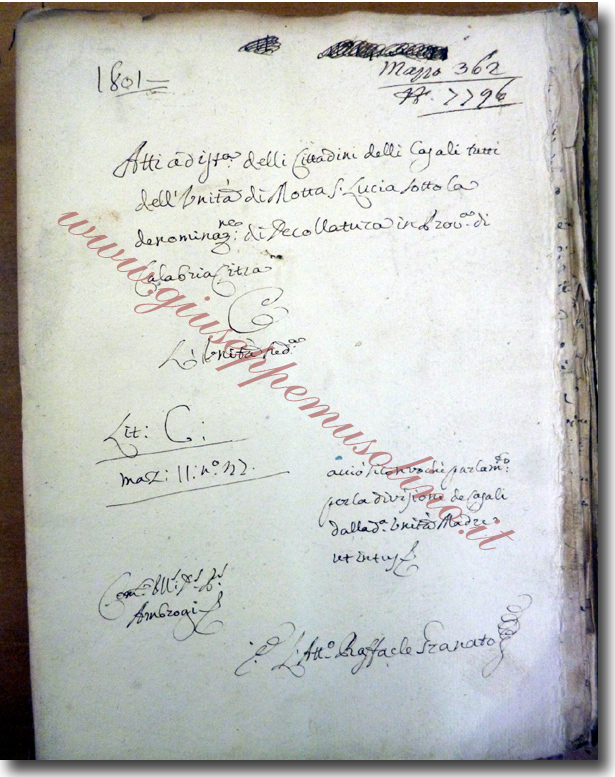 1801=
Mazzo 362
N. 7796
Atti ad ist.a delli Cittadini delli Casali tutti
dell'Unità di Motta S. Lucia sotto la
denominaz.ne di Decollatura in Prov.a di
Calabria Citra
C
L'Unità sud.a
Litt: C:
maz: 11: n.o
acciò si convochi parlam.to
per la divisione de Casali
dalla d.a Unità Madre
ut intus
Ambrogi
L'Att.o Raffaele Granato
www.giuseppemusolino.it